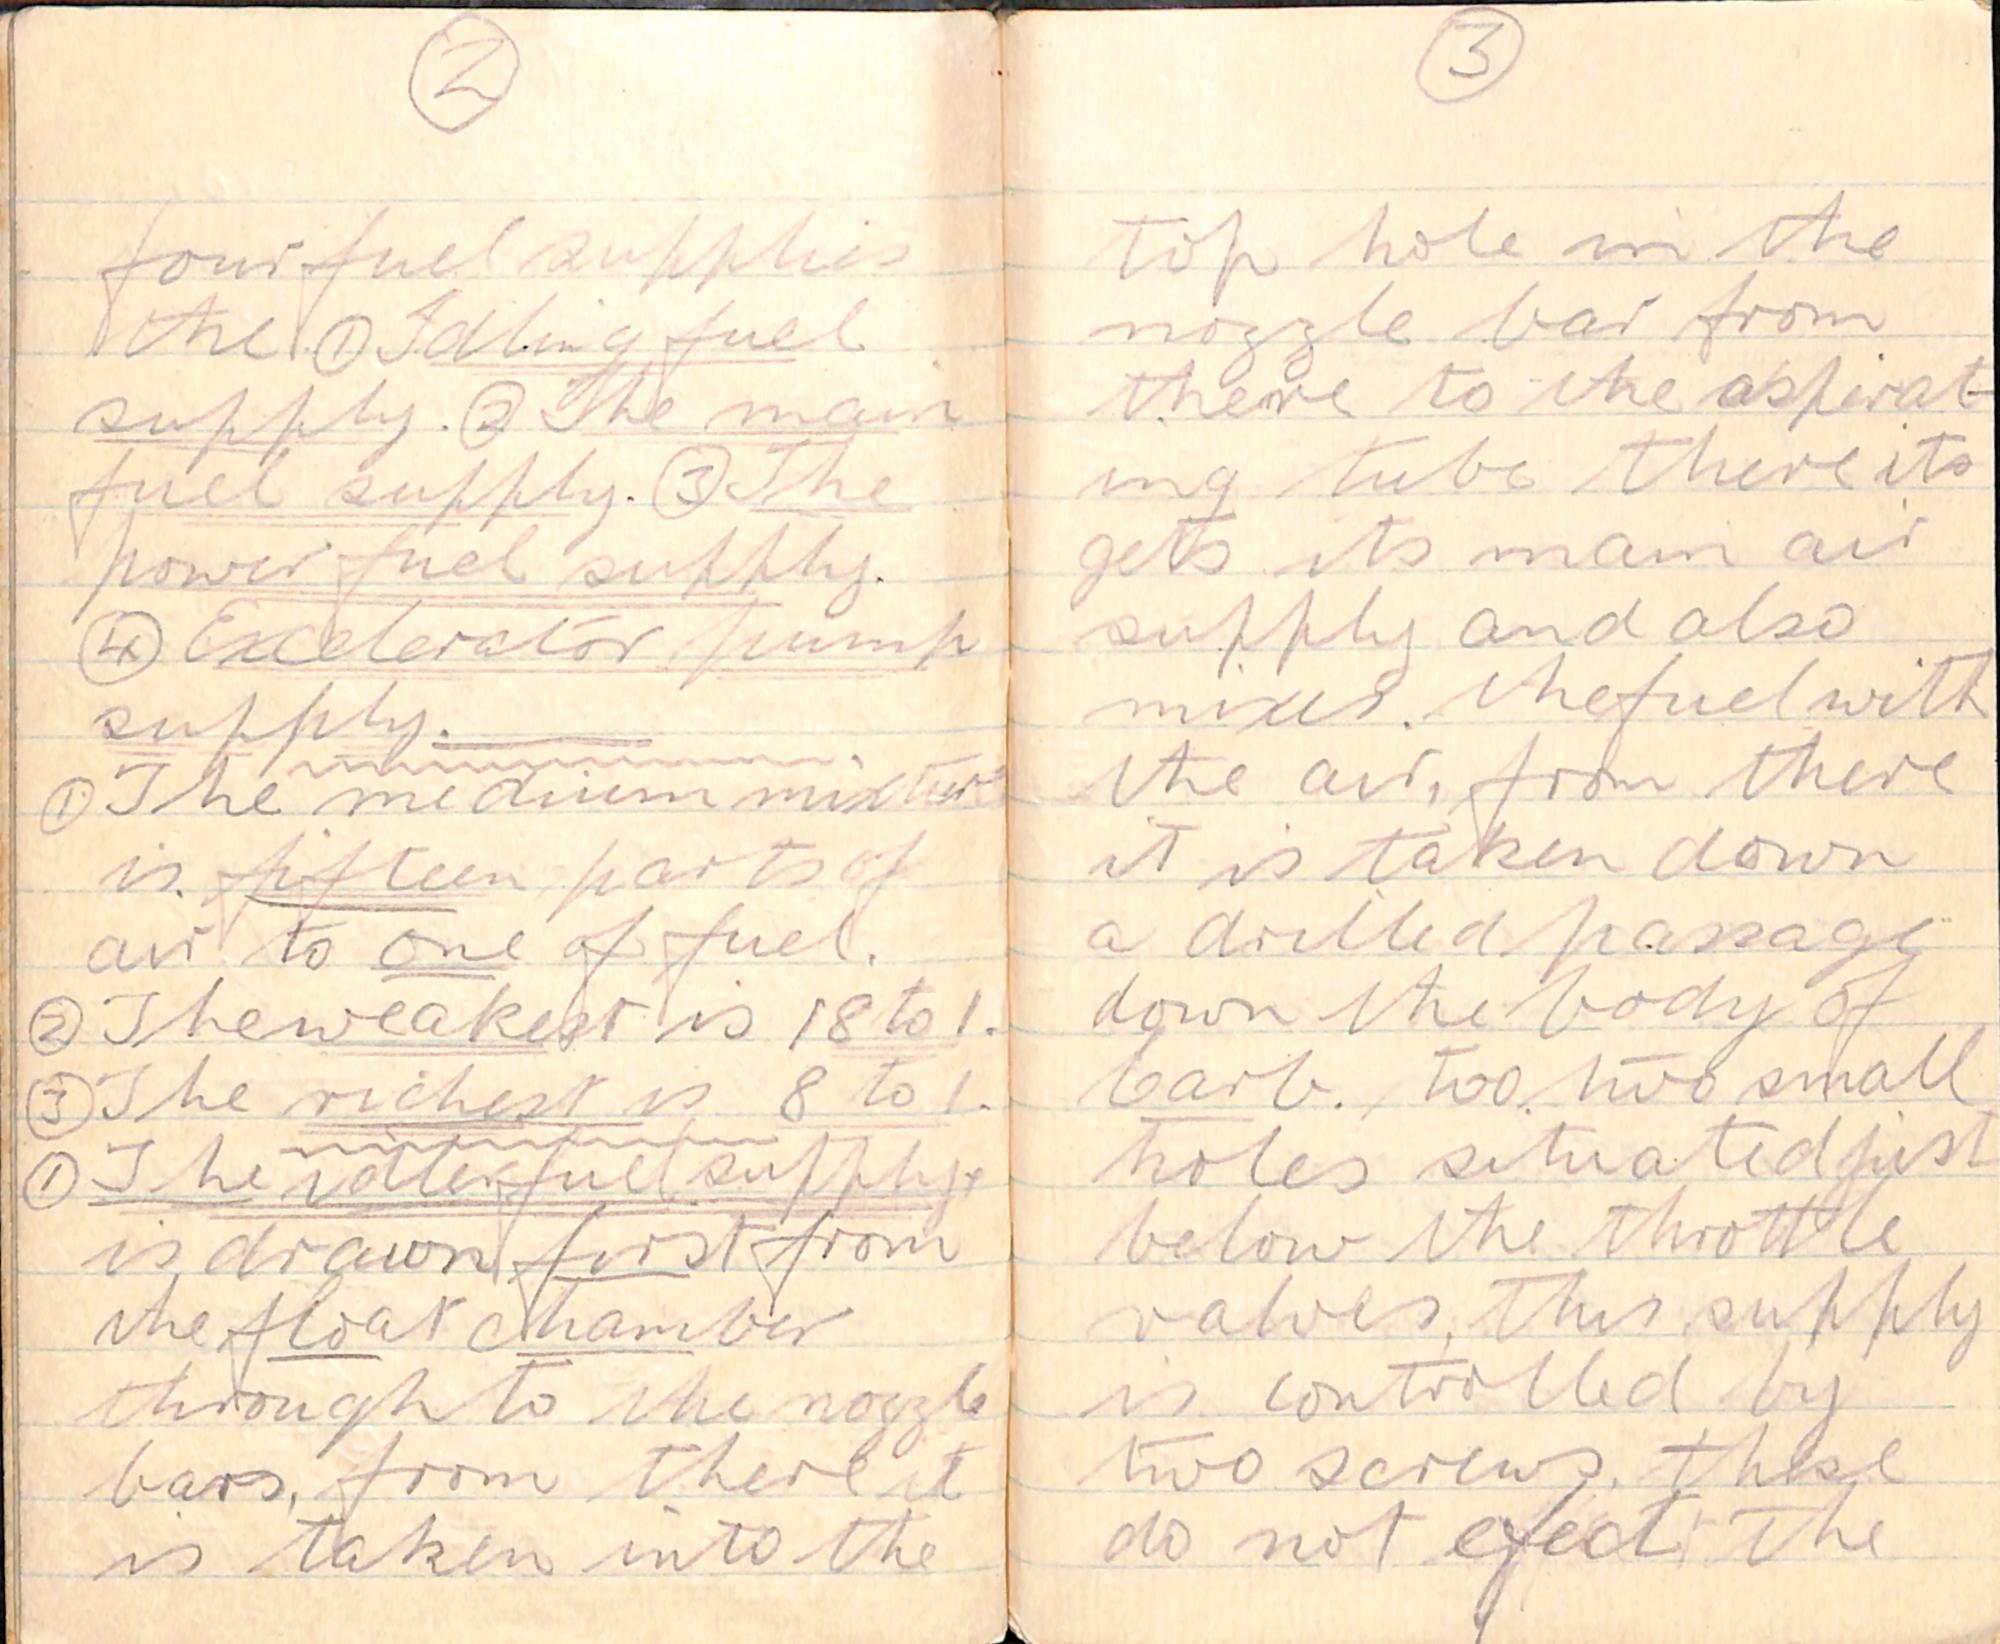 ②
four fuel supplies
the ① Idling fuel
supply. ② The main
fuel supply. ③ The
power fuel supply.
④ Excelerator pump
supply.
① The medium mixture
is fifteen parts of
air to one of fuel.
② The weakest is 18 to 1.
③ The richest is 8 to 1.
① The idler fuel supply
is drawn first from
the float chamber
through to the nozzle
bars, from there it
is taken into the
③
top hole in the
nozzle bar from
there to the aspirat-
ing tube there its
gets its main air
supply and also
mixes. the fuel with
the air, from there
it is taken down
a drilled passage
down the body of
barb. too two small
holes situated just
below the throttle
valves, this supply
is controlled by
two screws. these
do not efect the